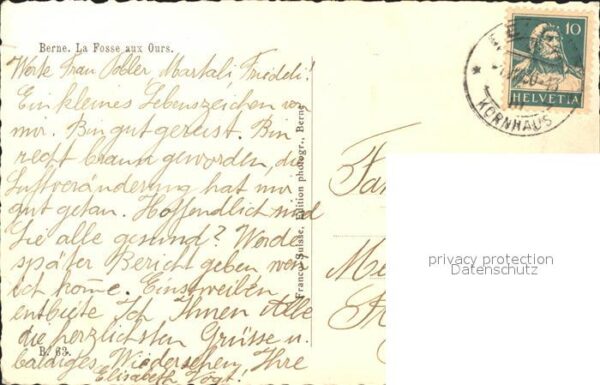 Berne. La Fosse aux Ours.
Werte Frau Dobler, Martali, Friedeli!
Ein kleines Lebenszeichen von
mir. Bin gut gereist. Bin
recht braun geworden, die
Luftveränderung hat mir
gut getan. Hoffendlich sind
Sie alle gesund? Werde
später Bericht geben, wenn
ich home. Einstweilen
entbiete Ich Ihnen Alle
die herzlichsten Grüsse u.
baldiges Wiedersehen, Ihre
Elisabeth Vogt.
B. 63.
Franco-Suisse, Edition photogr., Berne
10
HELVETIA
KORNHAUS
privacy protection
Datenschutz